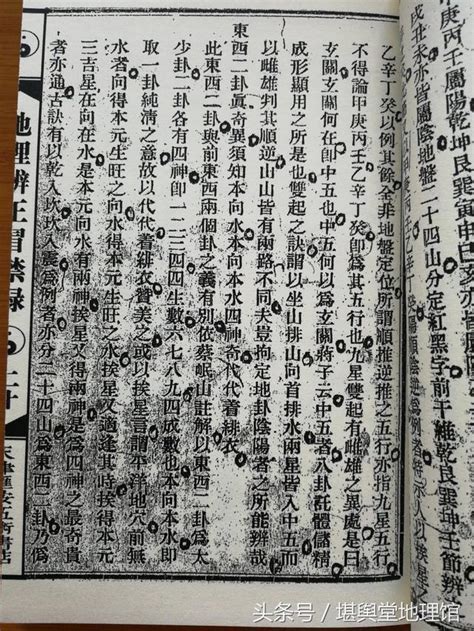 甲庚丙壬屬陽乾坤艮巽寅申巳亥亦屬
戌丑未亦皆屬陰地盤二十四山分定紅黑字前干維乾艮巽壬節辨
乙辛丁癸以例其餘全非地盤定位所謂順推逆推之五行亦指九星五行
不得論甲庚丙壬乙辛丁癸卽爲其五行也九星雙起有雌雄之異處是曰
玄關玄關何在卽中五也中五何以爲玄關蔣子云中五者八卦託體儲精
成形顯用之所是也雙起之訣謂以坐山排山向首排水兩星皆入中五而
以雌雄判其順逆山山皆有兩路不同夫豈拘定地卦陰陽者之所能辨哉
東西二卦眞奇異須知本向本水四神奇代代着緋衣
此東西二卦與前東西兩個卦之義有別依蔡岷山註解以東西二卦爲大
少卦二卦各有四神卽一二三四四生數六七八九四成數也本向本水卽
取一卦純清之意故以代代着緋衣贊美之或以挨星言謂平洋地穴前無
水者向得本元向水得本元生旺之水挨星又適逢其時挨得本元
三吉星在向在水是本元向水有兩神挨星又得兩神是爲四神之最奇貴
者亦通古訣有以乾入坎坎入震爲例者亦分二十四山爲東西二卦乃僞
地理辨正冒禁錄
二十
頭条号/堪舆堂地理馆